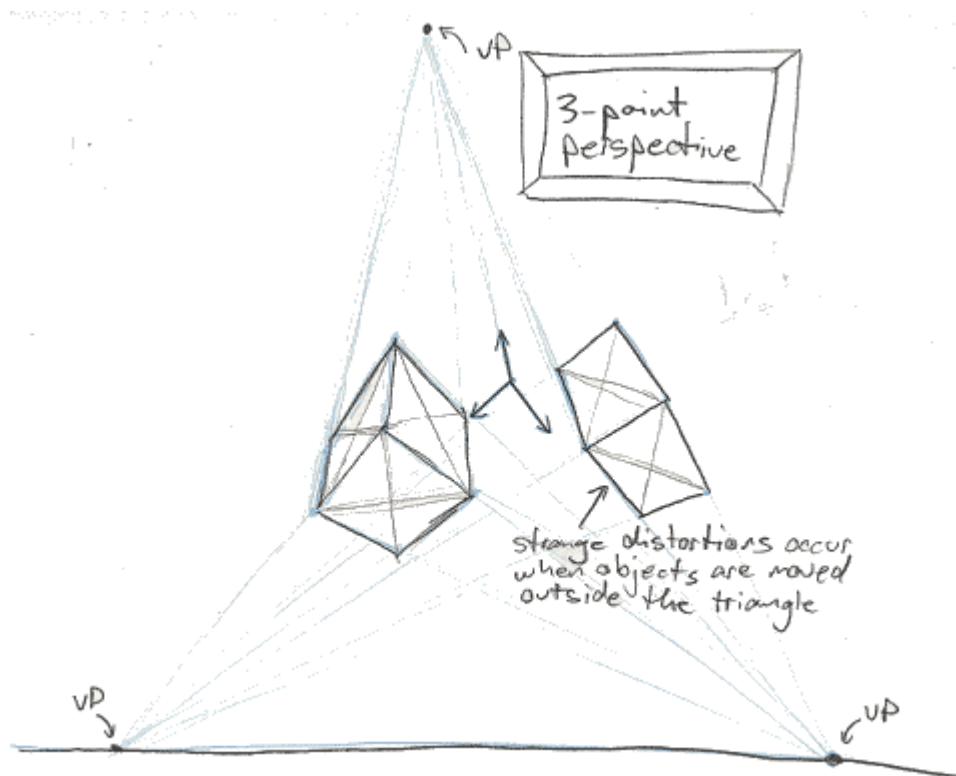 VP
3-point
perspective
strange distortions occur
when objects are moved
outside the triangle
VP
VP